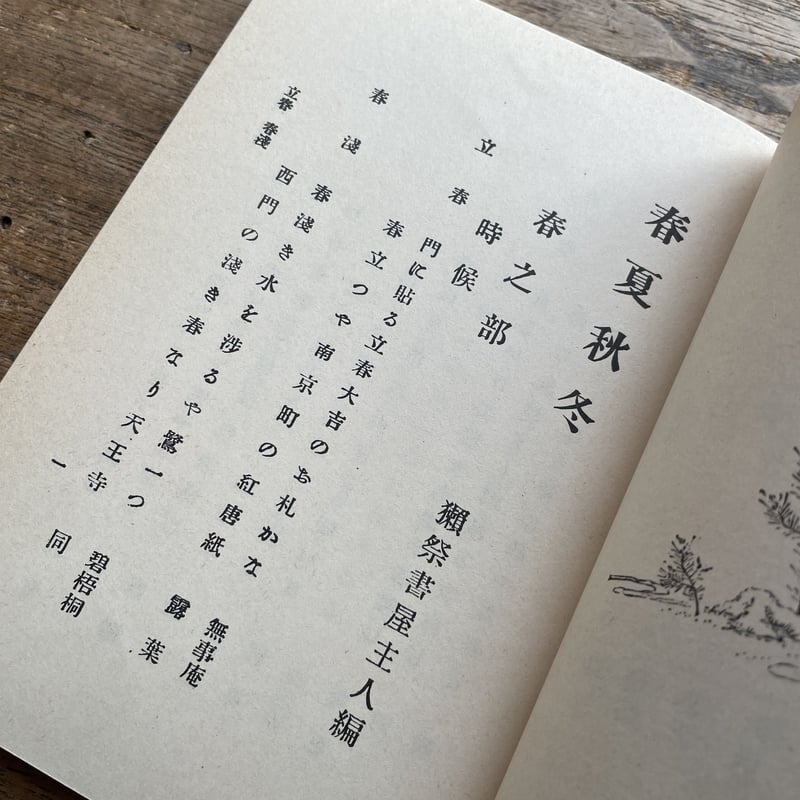 春夏秋冬
獺祭書屋主人編
春之部
時候
立春
門に貼る立春大吉のお札かな
無事庵
春立つや南京町の紅唐紙
露葉
春淺
春淺き水を渉るや鷺一つ
碧梧桐
西門の淺き春なり天王寺
同
立春 春淺
一